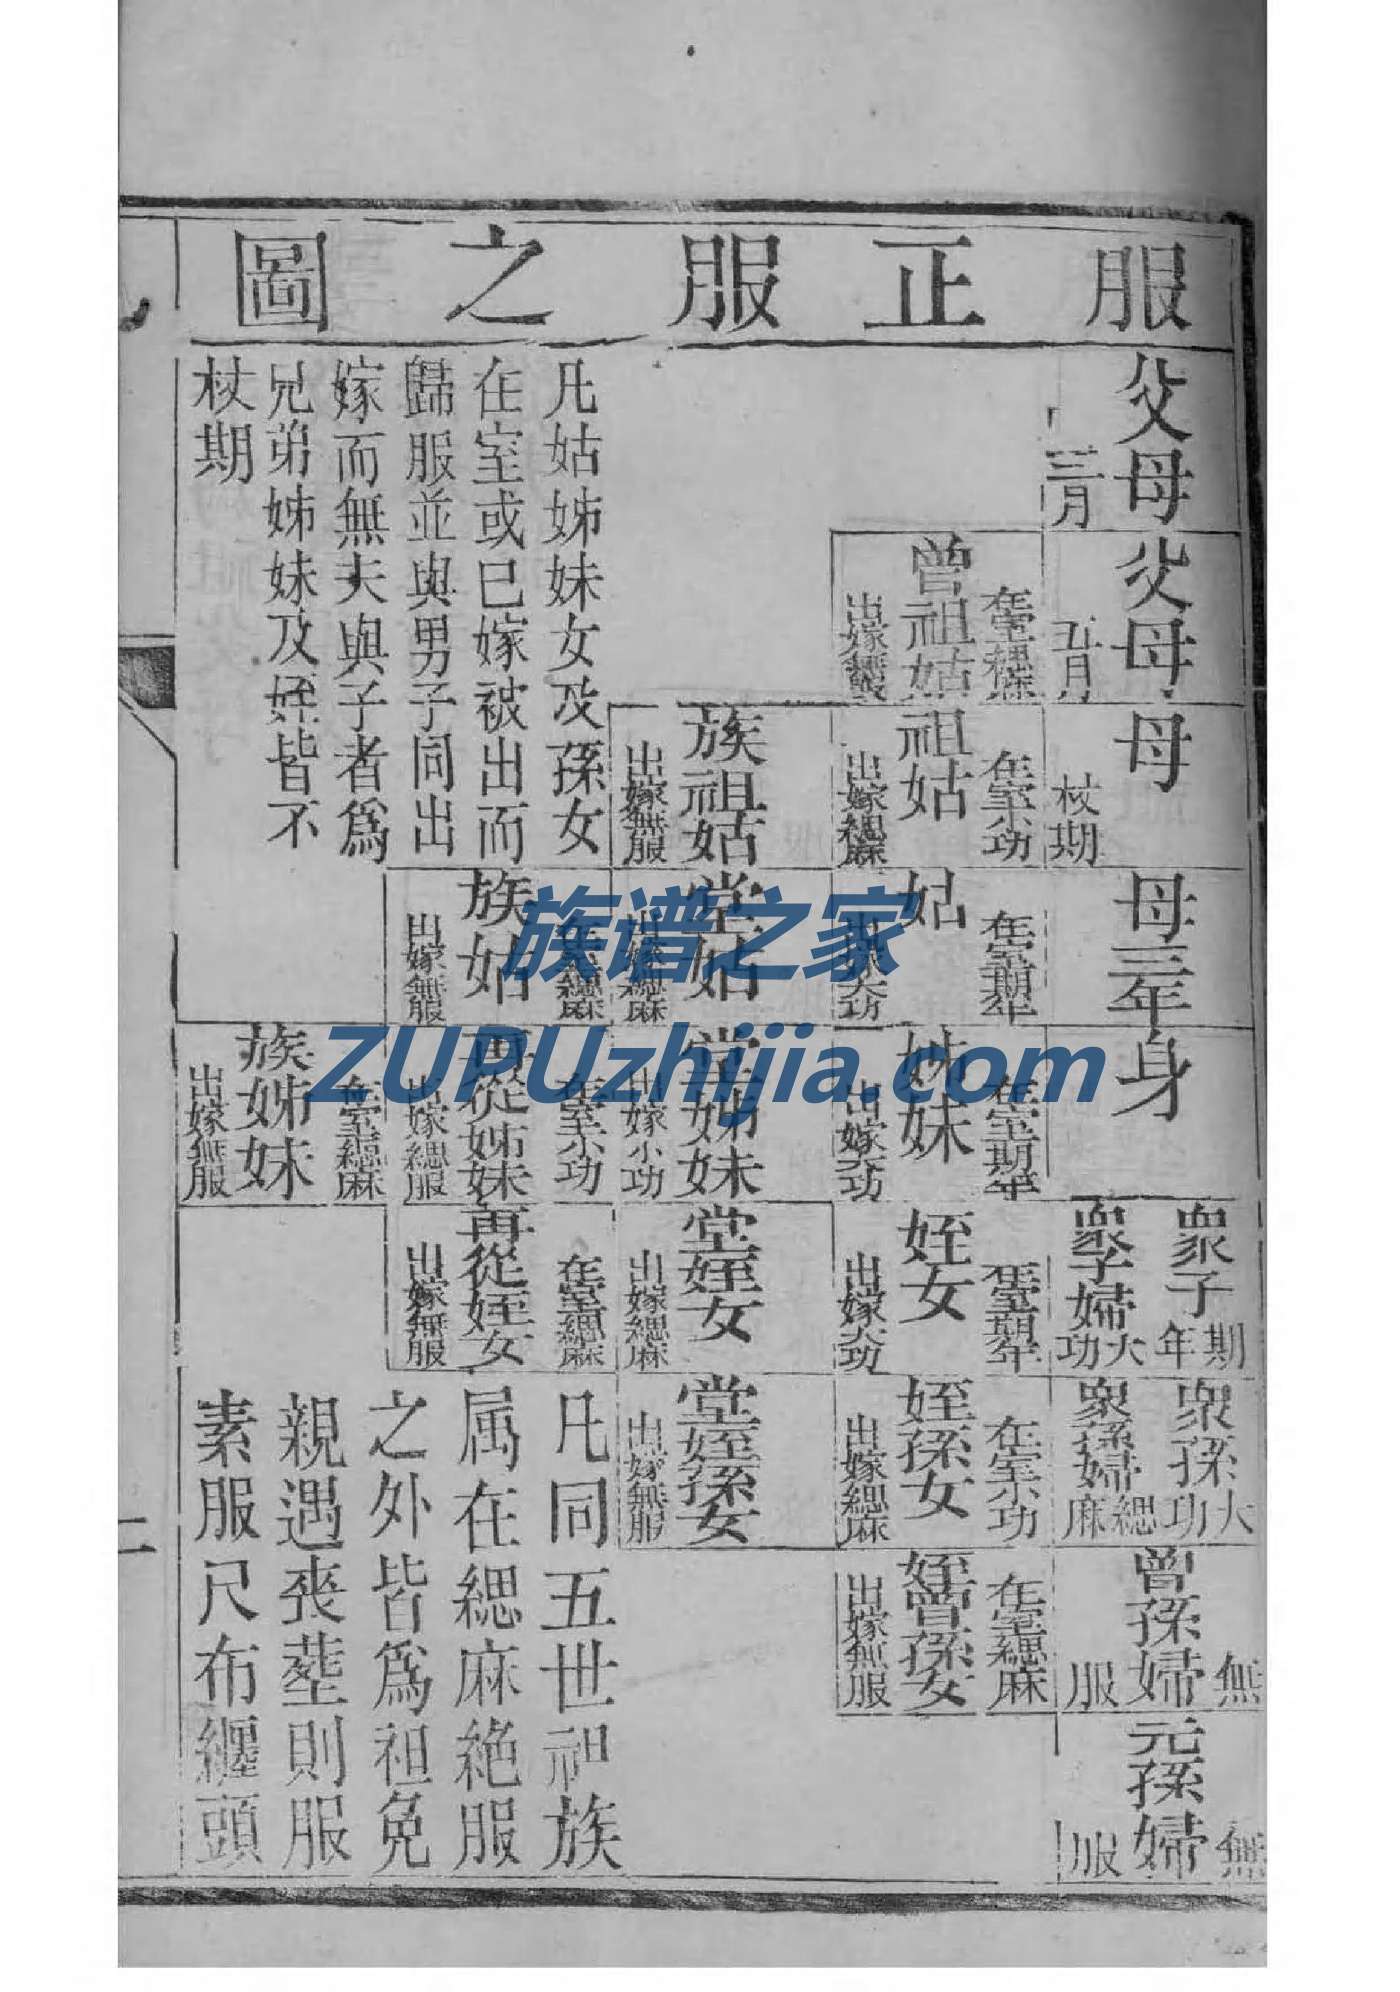 服正服之圖
父母
三月
父母
五月
母
杖期
母三年
身
衆子期年
衆子婦大功
衆孫大功
衆孫婦緦麻
曾孫婦無服
元孫婦無服
曾祖姑
在室緦麻
出嫁無服
祖姑
在室小功
出嫁緦麻
姑
在室期年
出嫁大功
姊妹
在室期年
出嫁大功
姪女
在室期年
出嫁大功
姪孫女
在室小功
出嫁緦麻
姪曾孫女
在室緦麻
出嫁無服
族祖姑
出嫁無服
堂姑
出嫁緦麻
堂姊妹
出嫁小功
堂姪女
出嫁緦麻
堂姪孫女
出嫁無服
凡姑姊妹女及孫女
在室或已嫁被出而
歸服並與男子同出
嫁而無夫與子者爲
兄弟姊妹及姪皆不
杖期
族姑
在室緦麻
出嫁無服
再從姊妹
在室小功
出嫁緦服
再從姪女
在室緦麻
出嫁無服
族姊妹
在室緦麻
出嫁無服
凡同五世祖族
属在緦麻絶服
之外皆爲袒免
親遇喪塟則服
素服尺布纏頭
二
族谱之家
ZUPUzhijia.com